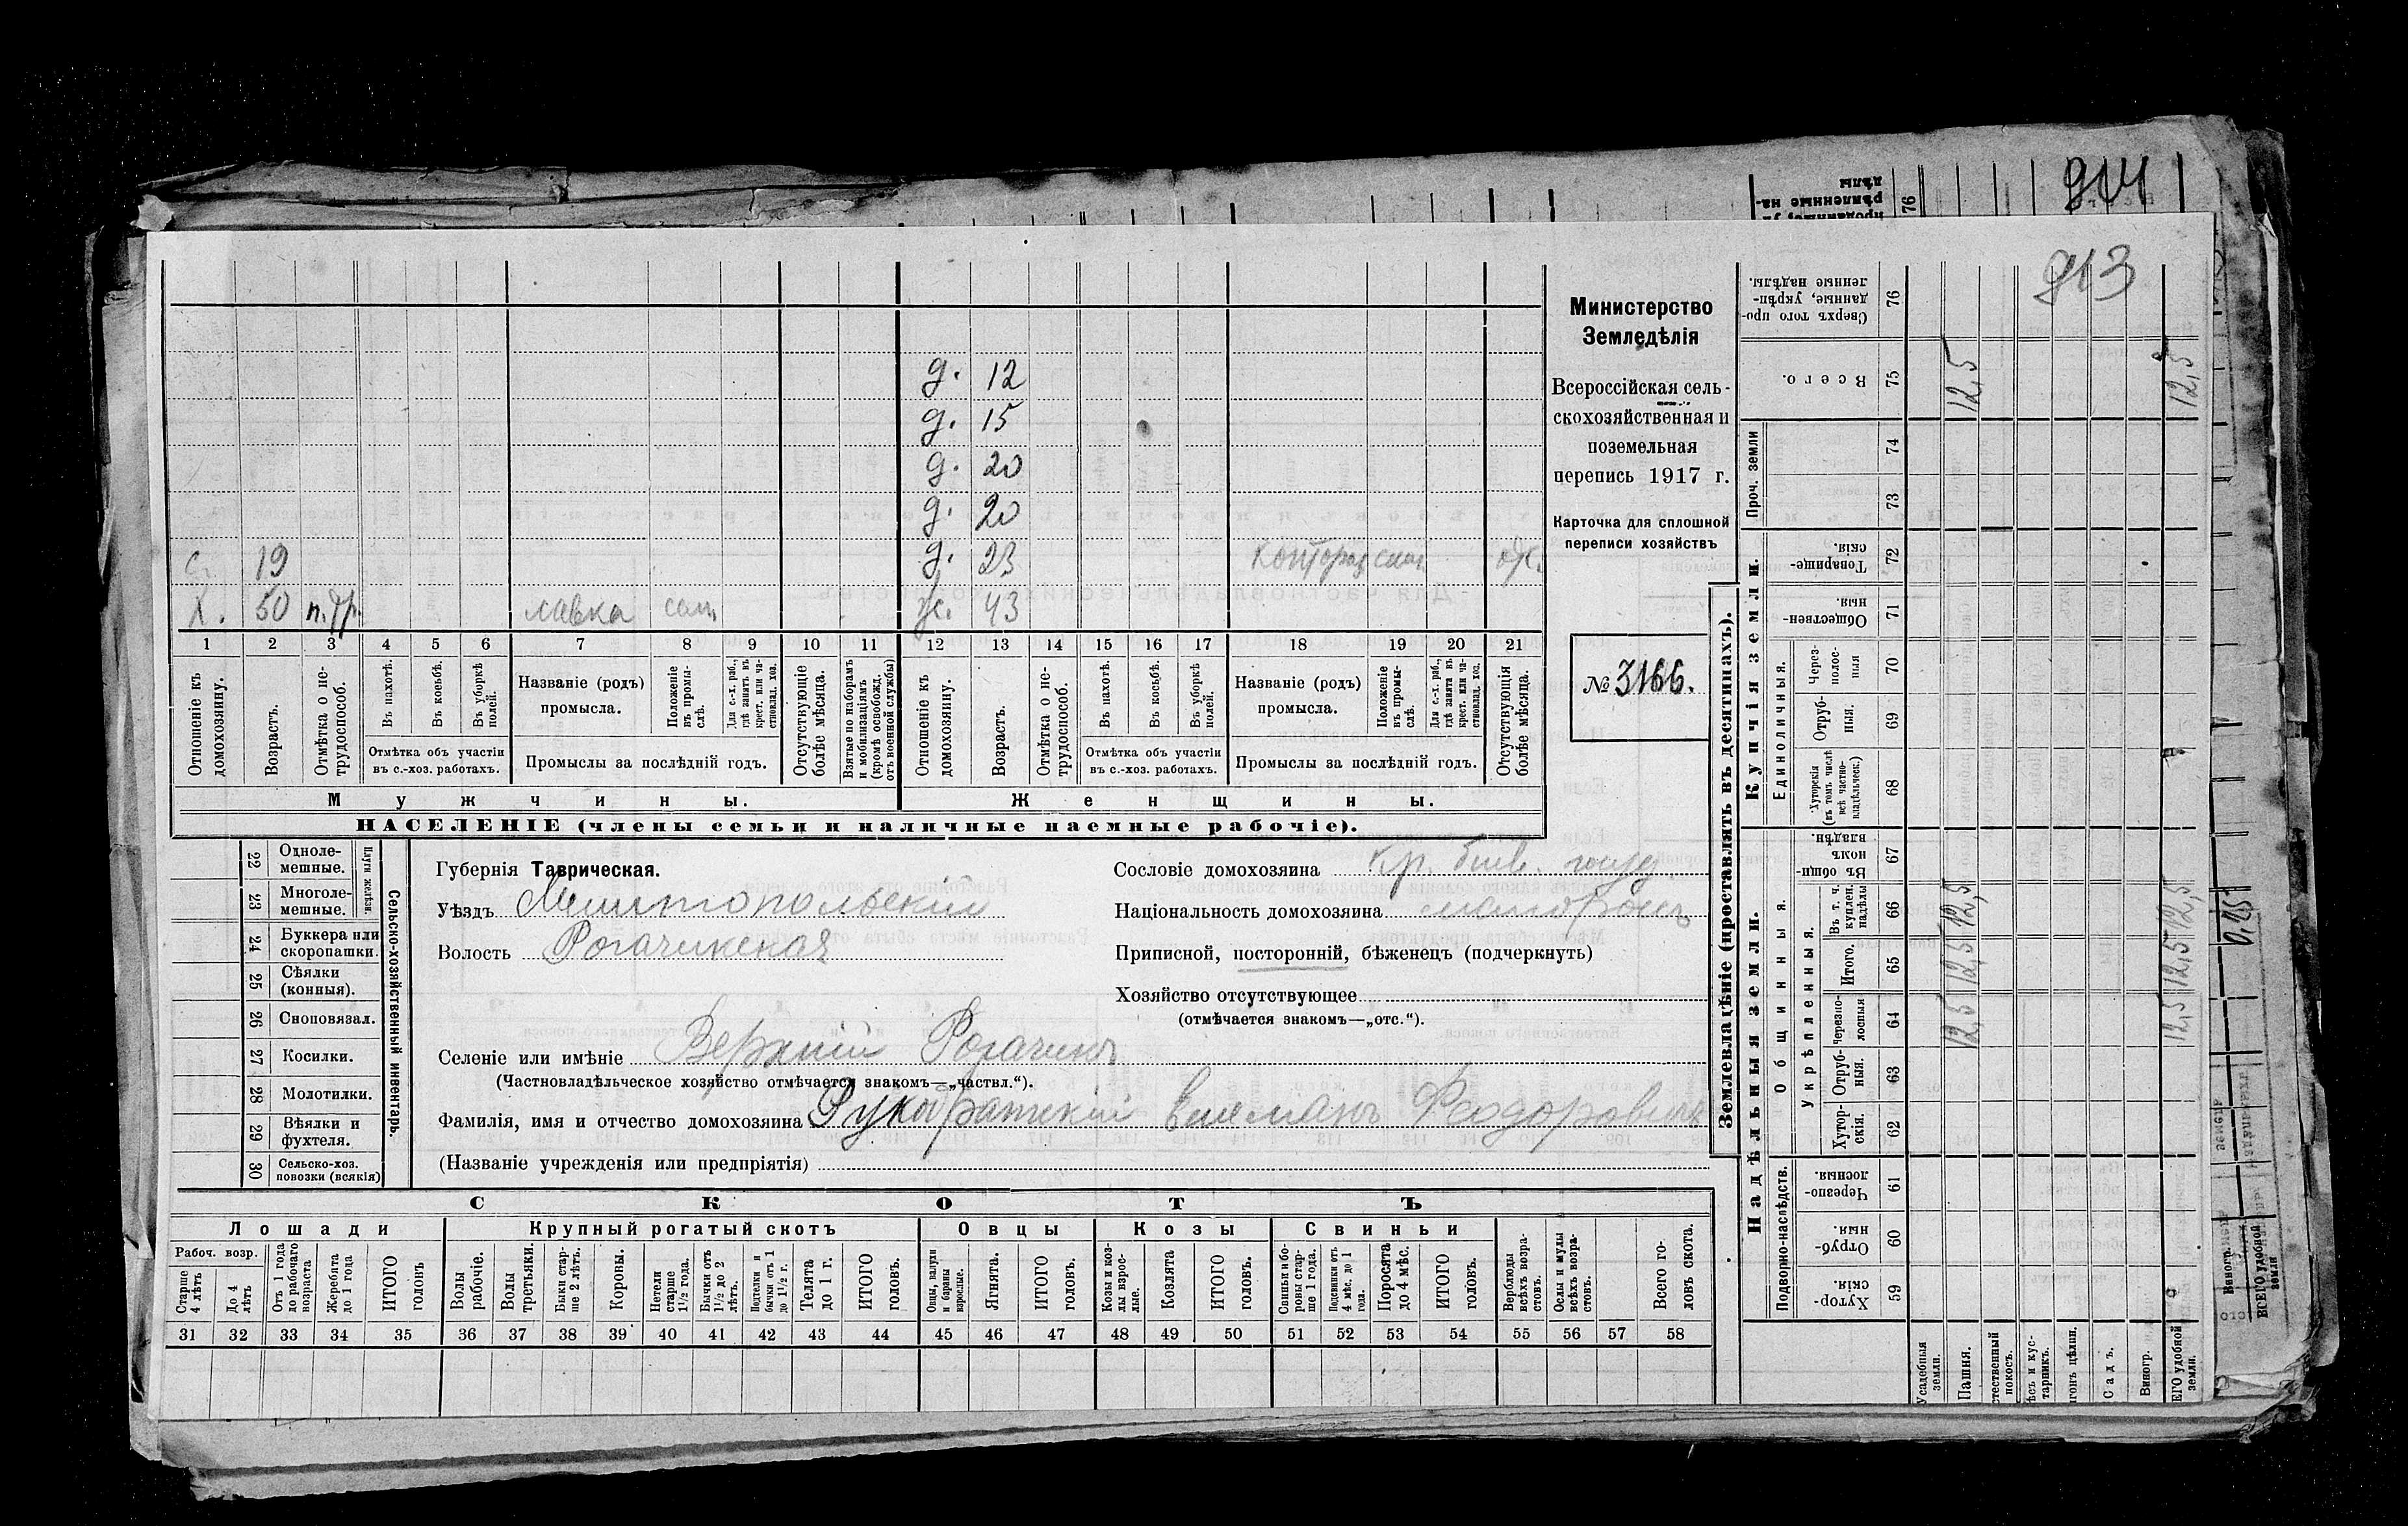 914
913
Министерство
Земледѣлія
Всероссійская сель-
скохозяйственная и
поземельная
перепись 1917 г.
Карточка для сплошной
переписи хозяйствъ
№ 3166.
д. 12
д. 15
д. 20
д. 20
с. 19 д. 23
Х. 50 лавка сам. ж. 43
1 2 3 4 5 6 7 8 9 10 11 12 13 14 15 16 17 18 19 20 21
Отношеніе къ домохозяину.
Возрастъ.
Отмѣтка о не-трудоспособ.
Въ пахотѣ.
Въ косьбѣ.
Въ уборкѣ полей.
Отмѣтка объ участіи въ с.-хоз. работахъ.
Названіе (родъ) промысла.
Положеніе въ промы-слѣ.
Для с.-х. раб., гдѣ занятъ въ крест. или ча-стновлад. хоз.
Промыслы за послѣдній годъ.
Отсутствующіе болѣе мѣсяца.
Взятые по наборамъ и мобилизаціямъ (кромѣ освобожд. отъ военной службы)
Отношеніе къ домохозяину.
Возрастъ.
Отмѣтка о не-трудоспособ.
Въ пахотѣ.
Въ косьбѣ.
Въ уборкѣ полей.
Отмѣтка объ участіи въ с.-хоз. работахъ.
Названіе (родъ) промысла.
Положеніе въ промы-слѣ.
Для с.-х. раб., гдѣ занята въ крест. или ча-стновлад. хоз.
Промыслы за послѣдній годъ.
Отсутствующія болѣе мѣсяца.
Мужчины. Женщины.
НАСЕЛЕНІЕ (члены семьи и наличные наемные рабочіе).
Сельско-хозяйственный инвентарь.
Плуги желѣзн.
22 Одноле-мешные.
23 Многоле-мешные.
24 Буккера или скоропашки.
25 Сѣялки (конныя).
26 Сноповязал.
27 Косилки.
28 Молотилки.
29 Вѣялки и фухтеля.
30 Сельско-хоз. повозки (всякія)
Губернія Таврическая.
Уѣздъ Мелитопольскій
Волость Рогачикская
Сословіе домохозяина Кр.
Національность домохозяина малоросъ
Приписной, посторонній, бѣженецъ (подчеркнуть)
Хозяйство отсутствующее
(отмѣчается знакомъ—„отс.“).
Селеніе или имѣніе Верхній Рогачикъ
(Частновладѣльческое хозяйство отмѣчается знакомъ—„частвл.“).
Фамилія, имя и отчество домохозяина Феодоровичъ
(Названіе учрежденія или предпріятія)
СКОТЪ
Лошади Крупный рогатый скотъ Овцы Козы Свиньи
Рабоч. возр.
Старше 4 лѣтъ
До 4 лѣтъ
Отъ 1 года до рабочаго возраста
Жеребята до 1 года
ИТОГО головъ
Волы рабочіе.
Волы третьяки.
Быки стар-ше 2 лѣтъ.
Коровы.
Нетели старше 1½ года.
Бычки отъ 1½ до 2 лѣтъ.
Подтелки и бычки отъ 1 до 1½ г.
Телята до 1 г.
ИТОГО головъ.
Овцы, валухи и бараны взрослые.
Ягнята.
ИТОГО головъ.
Козы и коз-лы взрос-лые.
Козлята
ИТОГО головъ.
Свиньи и бо-ровы стар-ше 1 года.
Подсвинки отъ 4 мѣс. до 1 года.
Поросята до 4 мѣс.
ИТОГО головъ.
Верблюды всѣхъ возра-стовъ.
Ослы и мулы всѣхъ возра-стовъ.
Всего го-ловъ скота.
31 32 33 34 35 36 37 38 39 40 41 42 43 44 45 46 47 48 49 50 51 52 53 54 55 56 57 58
Землевладѣніе (проставлять въ десятинахъ).
Надѣльныя земли. Купчія земли.
Подворно-наслѣдств.
Общинныя
Укрѣпленныя.
Единоличныя.
Проч. земли
Хутор-скія. 59
Отруб-ныя. 60
Черезпо-лосныя. 61
Хутор-скія. 62
Отруб-ныя. 63
Черезпо-лосныя 64
Итого. 65
Въ т. ч. куплен. надѣлы 66
Въ общин-номъ владѣн. 67
Хуторскія (въ томъ числѣ всѣ частно-владѣльческ.) 68
Отруб-ныя. 69
Через-полос-ныя 70
Обществен-ныя. 71
Товарище-скія. 72
73
74
Всего. 75
Сверхъ того про-данные, укрѣп-ленные надѣлы. 76
Усадебныя земли.
Пашня. 12,5 12,5 12,5 12,5
Садъ.
Виногр.
ЕГО удобной земли. 12,5 12,5 12,5 12,5
ВСЕГО удобной земли